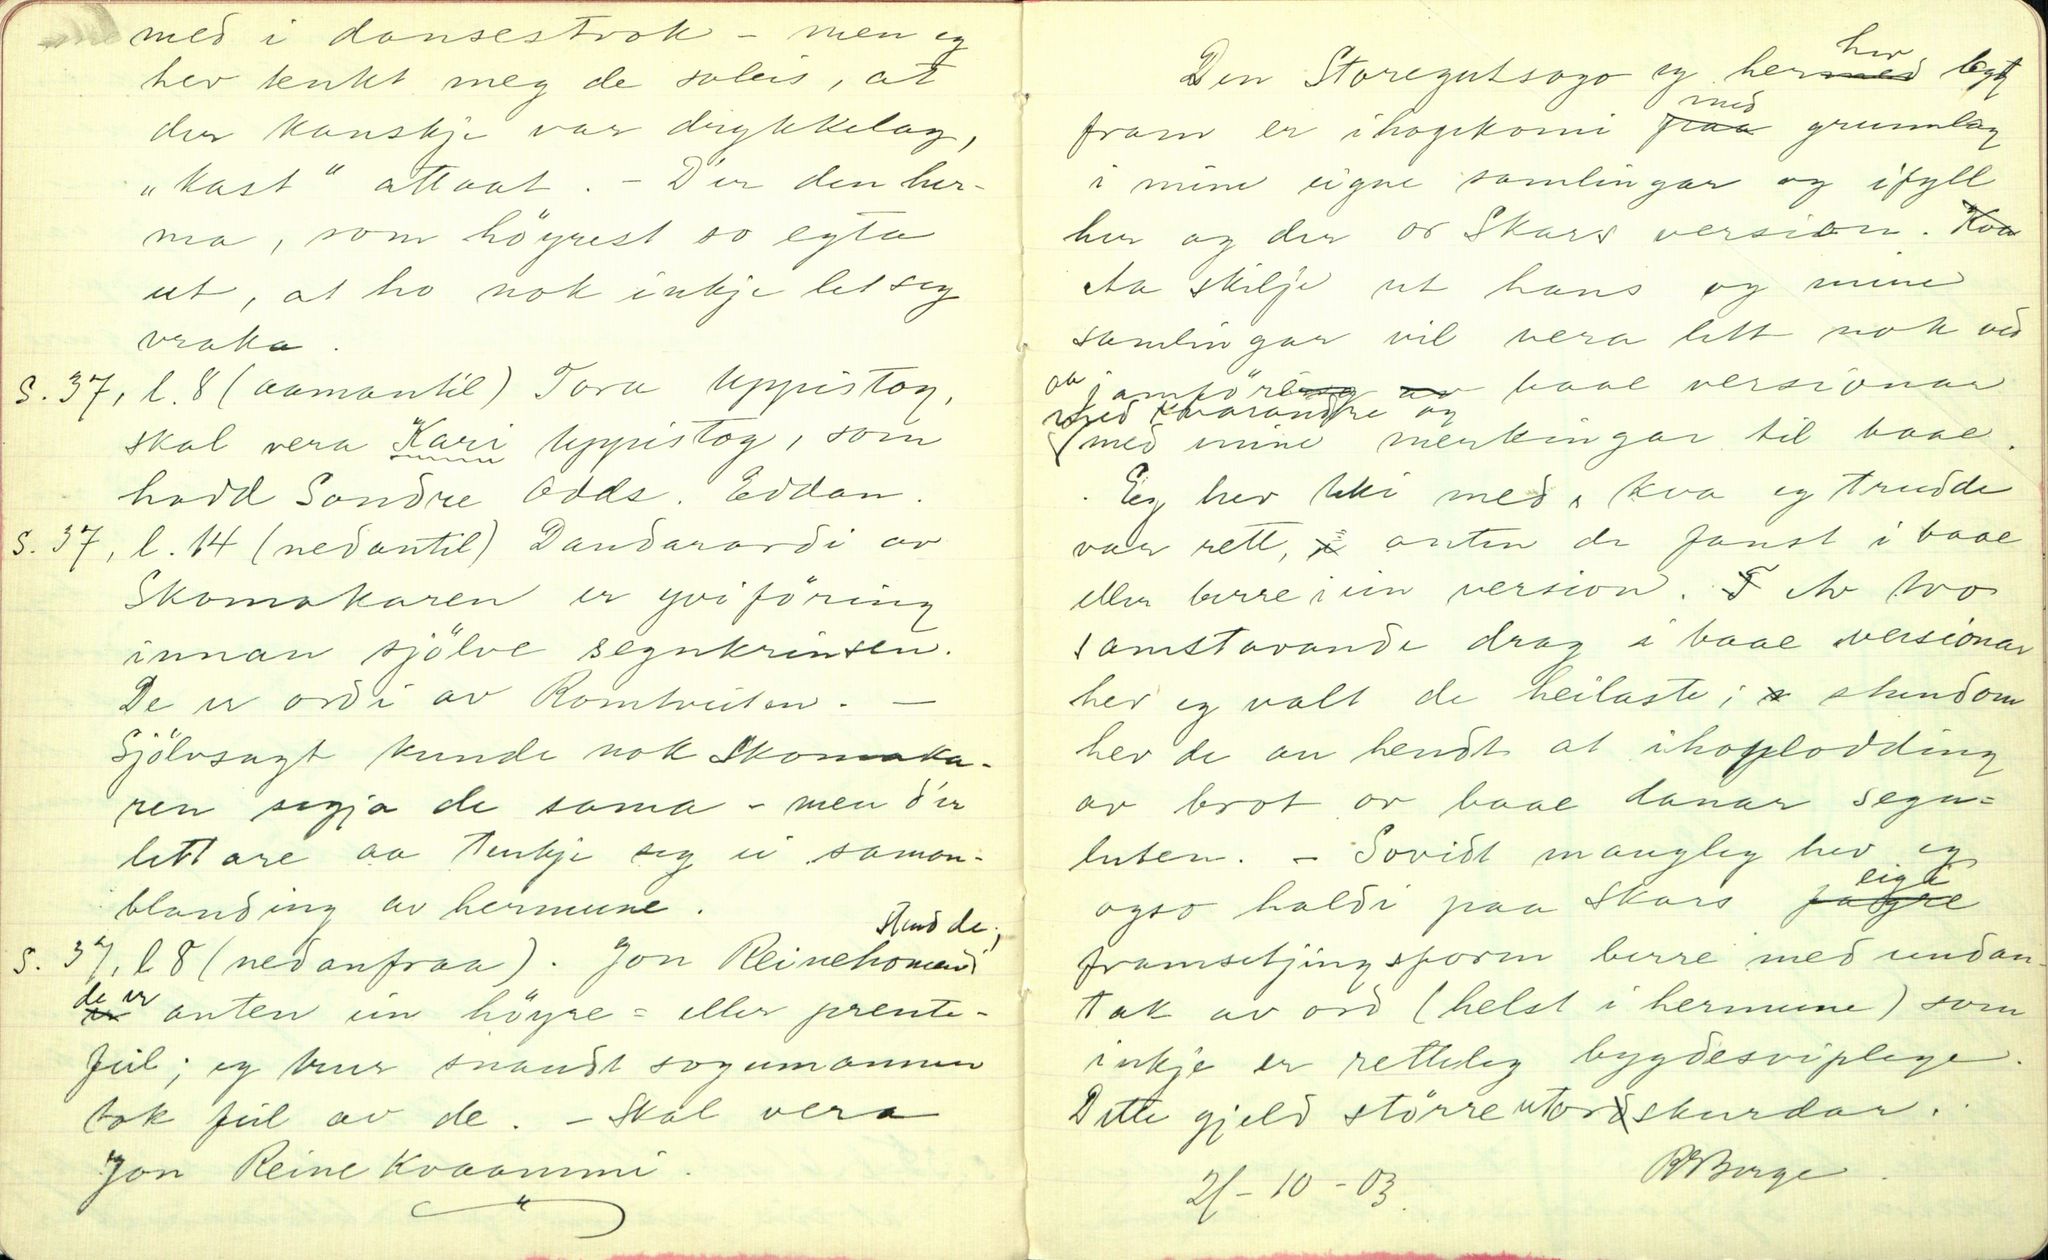 med i dansestrok – men eg
hev tenkt meg de soleis, at
der kanskje var drykkelag,
„kast" attaat. – D'er den her-
ma, som höyrest so egta
ut, at ho nok inkje let seg
vraka.
S. 37, l. 8 (aamantil) Tora Uppistog,
skal vera Kari Uppistog, som
hadd Sondre Odds. Eddan.
S. 37, l. 14 (nedantil) Daudarordi av
Skomakaren er yviföring
innan sjölve segnkrinsen.
De er ordi av Romtveiten. –
Sjölvsagt kunde nok Skomaka-
ren segja de sama – men d'er
lettare aa tenkje seg ei saman-
blanding av hermune.
S. 37, l 8 (nedanfraa). Jon Reinehomen
Stend de;
de er anten ein höyre= eller prente-
feil; eg trur snaudt sogumannen
tok feil av de. – Skal vera
Jon Reine Kvaammi.
Den Storegutsogo eg her hev lagt
fram er ihogekomi med grunnlag
i mine eigne samlingar og ifyll
her og der or Skars version. Kva
Aa skilje ut hans og mine
samlingar vil vera lett nok ved
aa jamföre baae versionar
med kvarandre og
med mine merkingar til baae.
Eg hev teki med, kva eg trudde
var rett, anten de fanst i baae
eller berre i ein version. Av tvo
samstavande drag i baae versionar
hev eg valt de heilaste; stundom
hev de au hendt at ihoplodding
av brot or baae danar segn=
luten. – Sovidt mangleg hev eg
ogso haldi paa Skars eigi
fagre
framsetjingsform berre med undan-
tak av ord (helst i hermune) som
inkje er retteleg bygdesviplege.
Dette gjeld större utordskurdar.
21-10-03. RBerge.